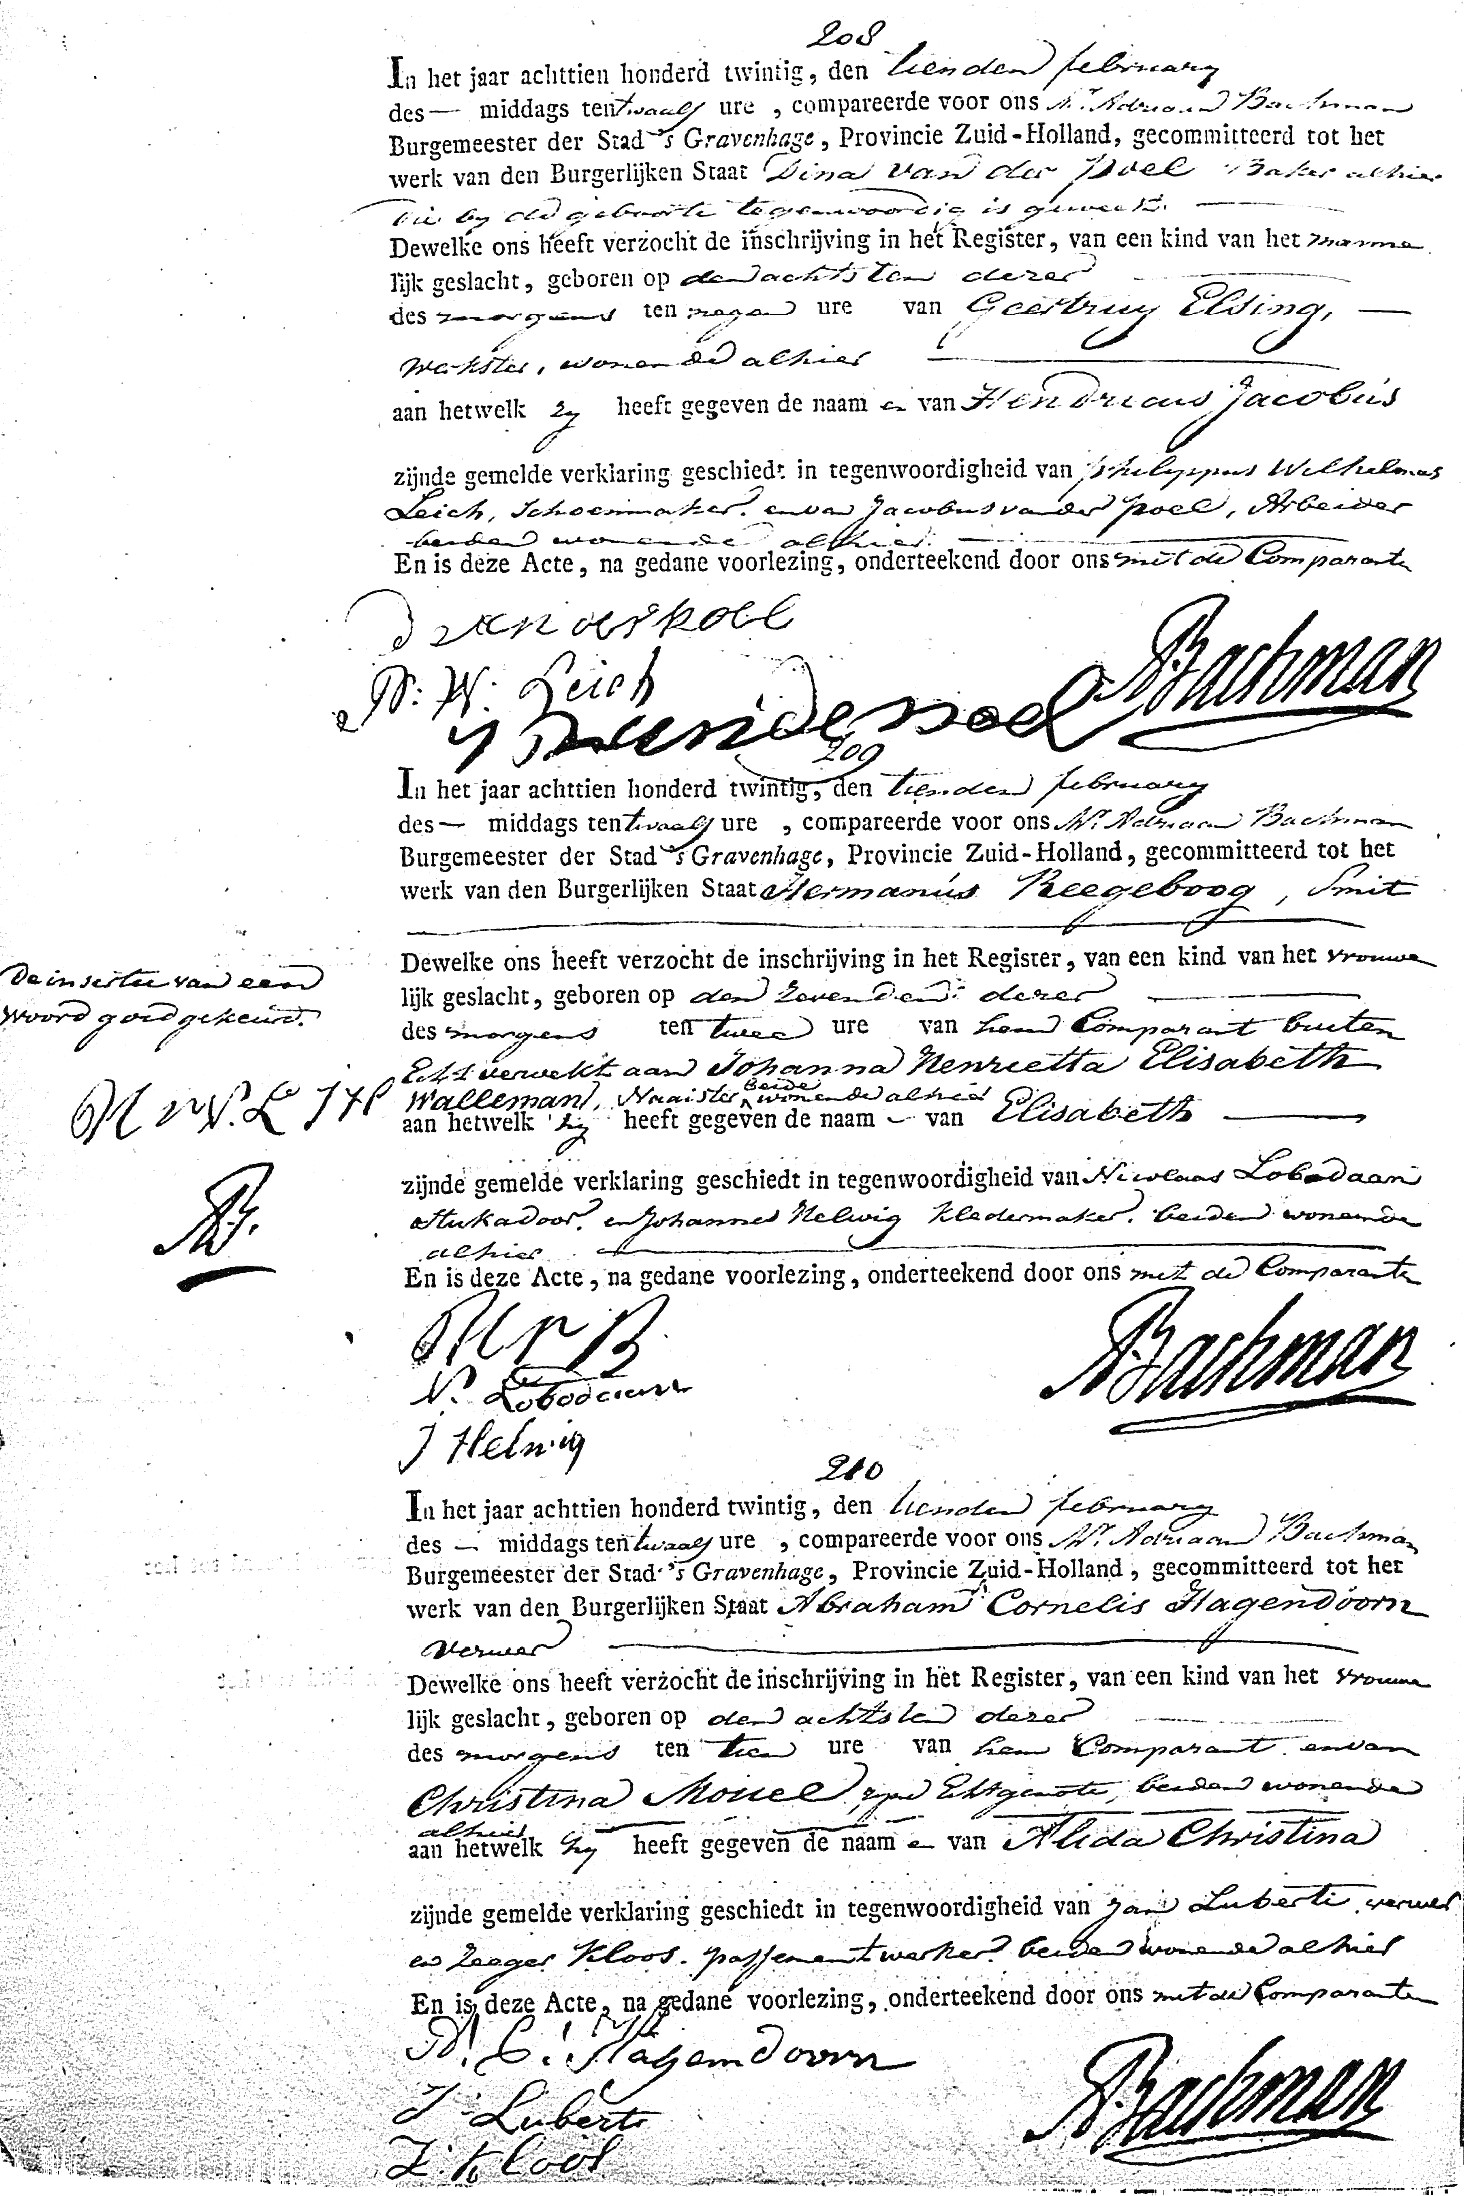 208
In het jaar achttien honderd twintig, den tienden february
des — middags ten twaalf ure , compareerde voor ons Mr. Adriaan Bachman
Burgemeester der Stad 's Gravenhage, Provincie Zuid-Holland, gecommitteerd tot het
werk van den Burgerlijken Staat Dina van der Poel Baker alhier
die by de geboorte tegenwoordig is geweest.
Dewelke ons heeft verzocht de inschrijving in het Register, van een kind van het manne
lijk geslacht, geboren op den achtsten dezer
des morgens ten negen ure van Geertruy Elsing,
Werkster, wonende alhier
aan hetwelk zy heeft gegeven de naam en van Hendricus Jacobus
zijnde gemelde verklaring geschiedt in tegenwoordigheid van Philyppus Wilhelmus
Leich, Schoenmaker. en van Jacobus van der Poel, Arbeider
beiden wonende alhier.
En is deze Acte, na gedane voorlezing, onderteekend door ons met de Comparante
D van der Poel
P: W: Leich
ABachman
209
In het jaar achttien honderd twintig, den tienden february
des — middags ten twaalf ure , compareerde voor ons Mr. Adriaan Bachman
Burgemeester der Stad 's Gravenhage, Provincie Zuid-Holland, gecommitteerd tot het
werk van den Burgerlijken Staat Hermanus Reegeboog, Smit
Dewelke ons heeft verzocht de inschrijving in het Register, van een kind van het vrouwe
lijk geslacht, geboren op den zevenden dezer
des morgens ten twee ure van hem Comparant buiten
Echt verwekt aan Johanna Henrietta Elisabeth
Walleman, Naaister beide wonende alhier
aan hetwelk hy heeft gegeven de naam van Elisabeth
zijnde gemelde verklaring geschiedt in tegenwoordigheid van Nicolaas Lobedaan
Stukadoor. en Johannes Helwig Kledermaker. beiden wonende
alhier
En is deze Acte, na gedane voorlezing, onderteekend door ons met de Comparanten
De insertie van een
woord goedgekeurd.
N. L J H
AB.
H r B
N. Lobodaan
J Helwig
ABachman
210
In het jaar achttien honderd twintig, den tienden february
des — middags ten twaalf ure , compareerde voor ons Mr. Adriaan Bachman
Burgemeester der Stad 's Gravenhage, Provincie Zuid-Holland, gecommitteerd tot het
werk van den Burgerlijken Staat Abraham Cornelis Hagendoorn
Verwer
Dewelke ons heeft verzocht de inschrijving in het Register, van een kind van het vrouwe
lijk geslacht, geboren op den achtsten dezer
des morgens ten tien ure van hem Comparant en van
Christina Mouel, zyne Echtgenote, beiden wonende
alhier
aan hetwelk hy heeft gegeven de naam en van Alida Christina
zijnde gemelde verklaring geschiedt in tegenwoordigheid van Jan Luberti, verwer
en Zeeger Kloos. passementwerker. beiden wonende alhier
En is deze Acte, na gedane voorlezing, onderteekend door ons met de Comparanten
A. C. Hagendoorn
J. Luberti
Z. Kloos
ABachman